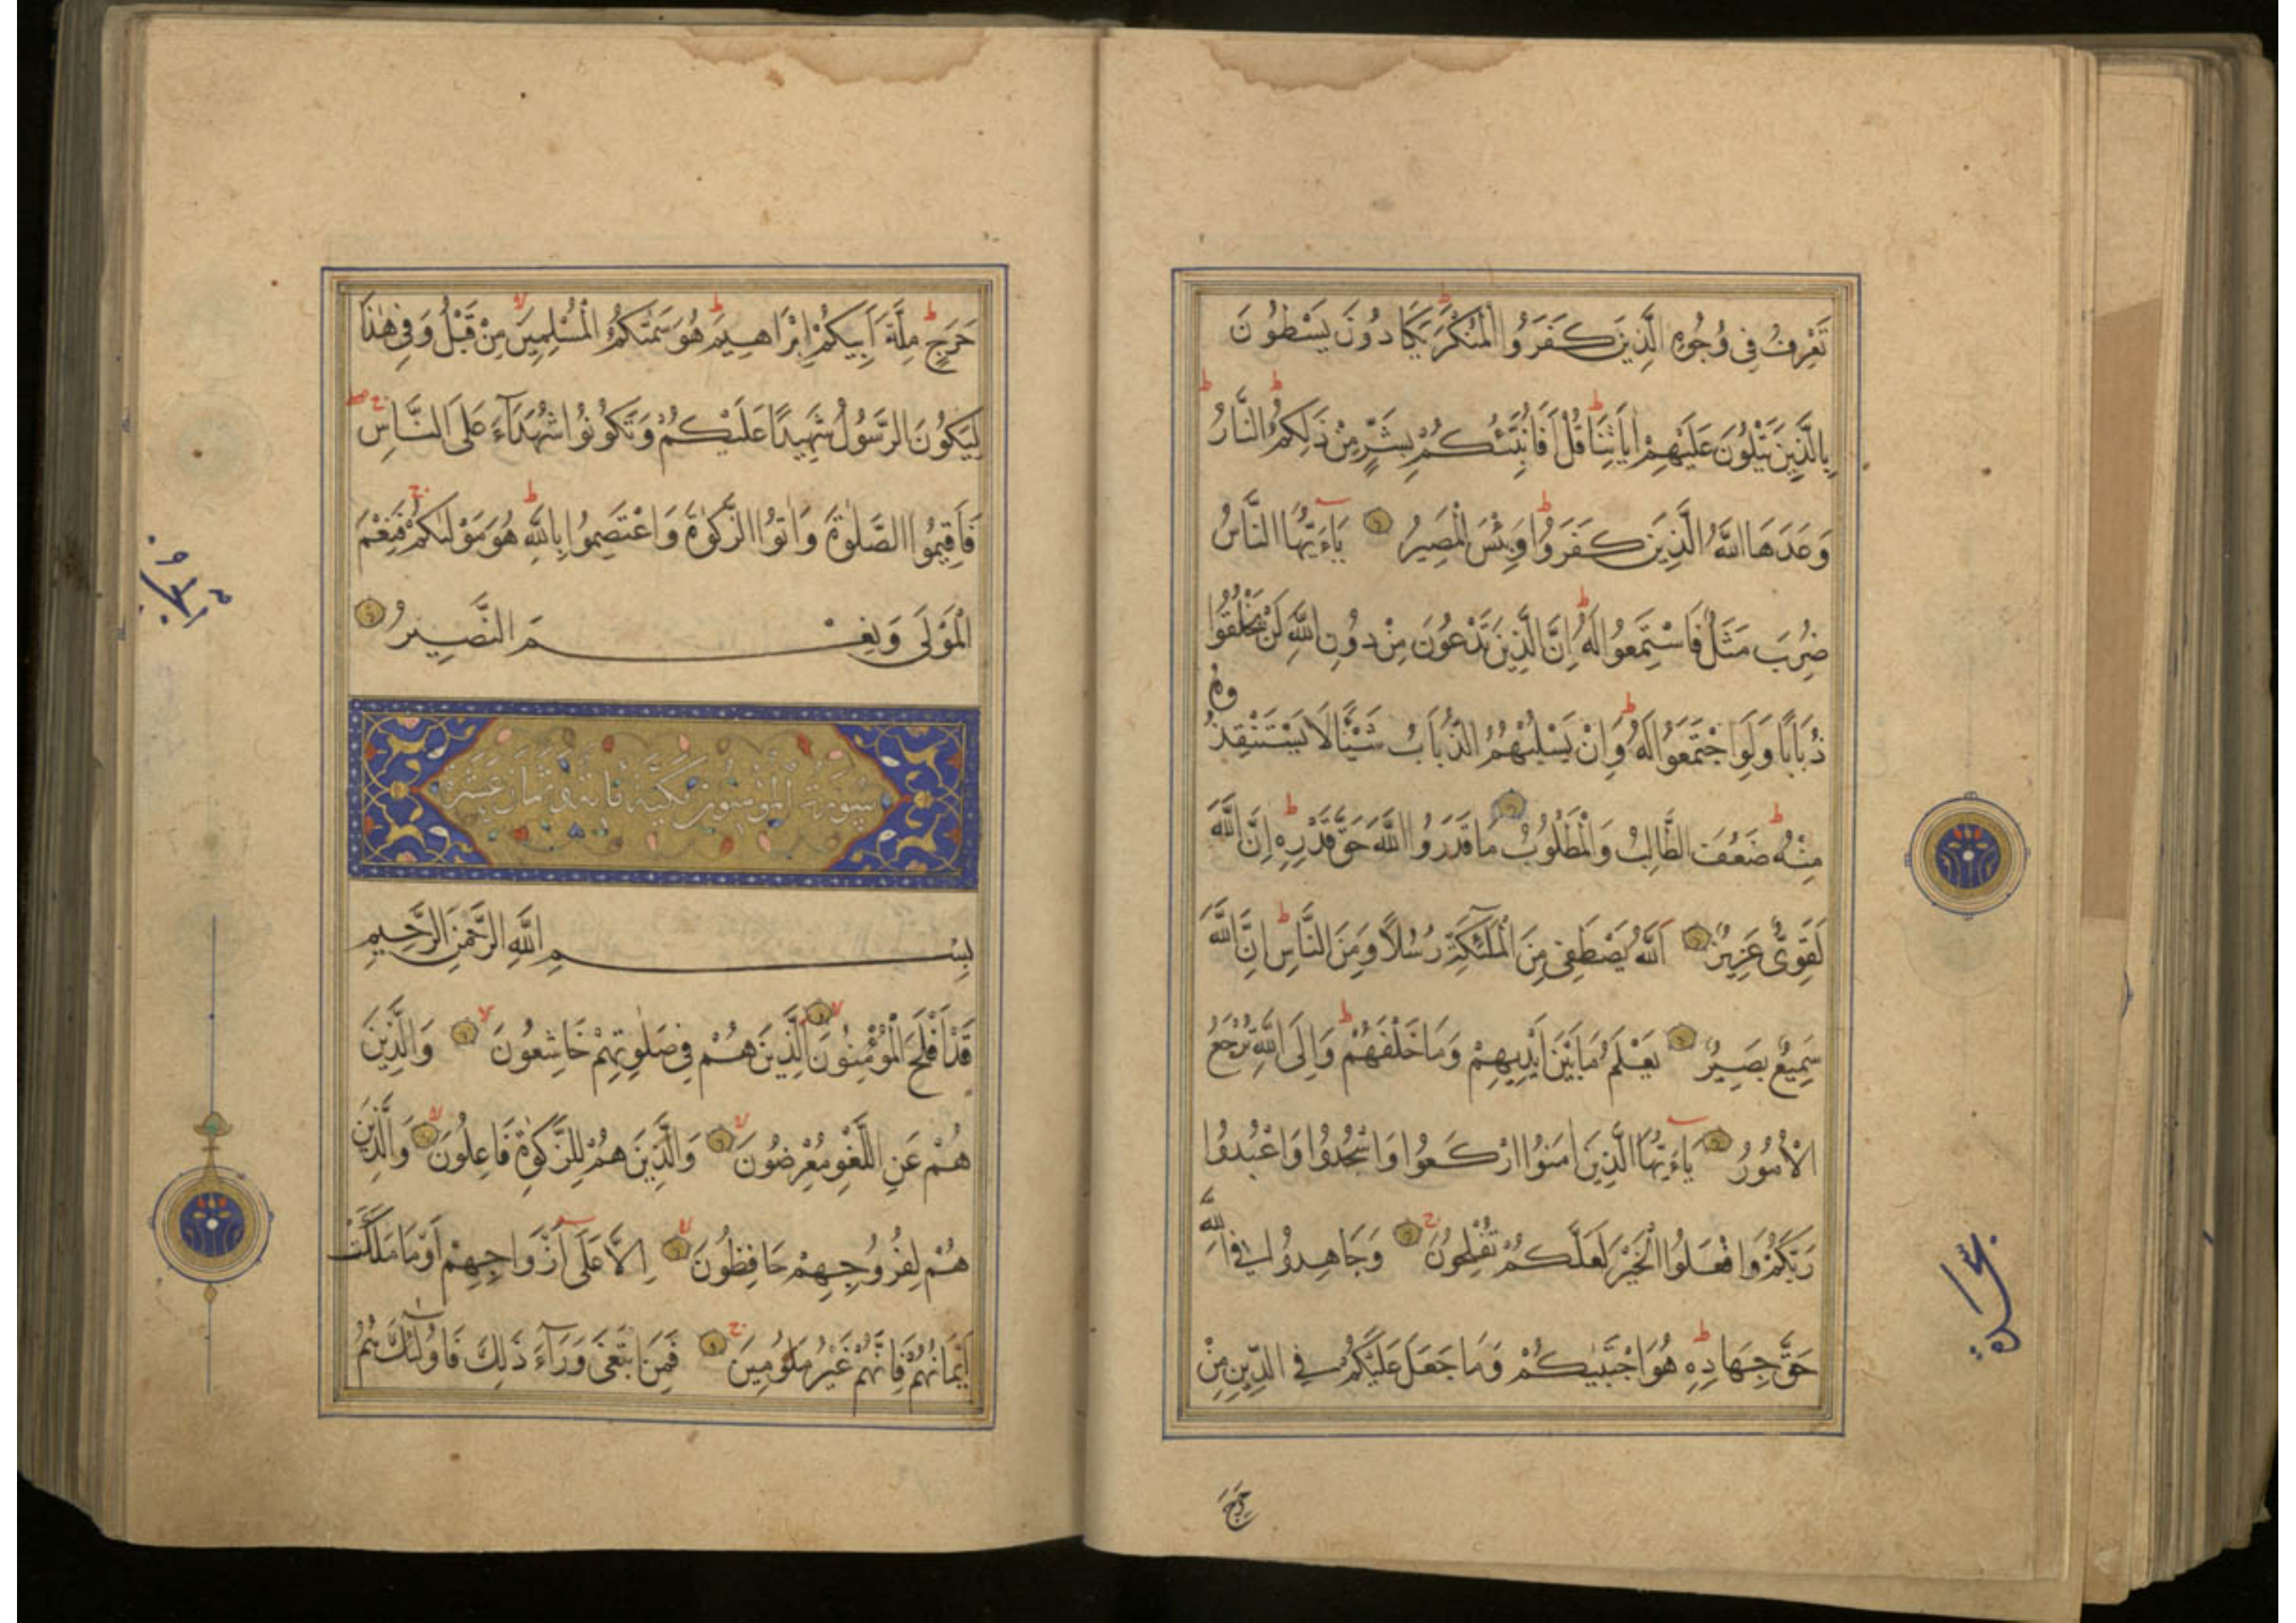 تَعْرِفُ فِى وُجُوهِ الَّذِينَ كَفَرُوا الْمُنْكَرَ يَكَادُونَ يَسْطُونَ
بِالَّذِينَ يَتْلُونَ عَلَيْهِمْ اٰيَاتِنَا قُلْ اَفَاُنَبِّئُكُمْ بِشَرٍّ مِنْ ذٰلِكُمُ النَّارُ
وَعَدَهَا اللَّهُ الَّذِينَ كَفَرُوا وَبِئْسَ الْمَصِيرُ يَاءَيُّهَا النَّاسُ
ضُرِبَ مَثَلٌ فَاسْتَمِعُوا لَهُ اِنَّ الَّذِينَ تَدْعُونَ مِنْ دُونِ اللَّهِ لَنْ يَخْلُقُوا
ذُبَابًا وَلَوِ اجْتَمَعُوا لَهُ وَاِنْ يَسْلُبْهُمُ الذُّبَابُ شَيْئًا لَا يَسْتَنْقِذُوهُ
مِنْهُ ضَعُفَ الطَّالِبُ وَالْمَطْلُوبُ مَا قَدَرُوا اللَّهَ حَقَّ قَدْرِهِ اِنَّ اللَّهَ
لَقَوِىٌّ عَزِيزٌ اَللَّهُ يَصْطَفِى مِنَ الْمَلٰئِكَةِ رُسُلًا وَمِنَ النَّاسِ اِنَّ اللَّهَ
سَمِيعٌ بَصِيرٌ يَعْلَمُ مَا بَيْنَ اَيْدِيهِمْ وَمَا خَلْفَهُمْ وَاِلَى اللَّهِ تُرْجَعُ
الْاُمُورُ يَاءَيُّهَا الَّذِينَ اٰمَنُوا ارْكَعُوا وَاسْجُدُوا وَاعْبُدُوا
رَبَّكُمْ وَافْعَلُوا الْخَيْرَ لَعَلَّكُمْ تُفْلِحُونَ وَجَاهِدُوا فِى اللَّهِ
حَقَّ جِهَادِهِ هُوَ اجْتَبٰيكُمْ وَمَا جَعَلَ عَلَيْكُمْ فِى الدِّينِ مِنْ
حَرَجٍ
سجدة
حَرَجٍ مِلَّةَ اَبِيكُمْ اِبْرَاهِيمَ هُوَ سَمّٰيكُمُ الْمُسْلِمِينَ مِنْ قَبْلُ وَفِى هٰذَا
لِيَكُونَ الرَّسُولُ شَهِيدًا عَلَيْكُمْ وَتَكُونُوا شُهَدَآءَ عَلَى النَّاسِ
فَاَقِيمُوا الصَّلٰوةَ وَاٰتُوا الزَّكٰوةَ وَاعْتَصِمُوا بِاللَّهِ هُوَ مَوْلٰيكُمْ فَنِعْمَ
الْمَوْلَى وَنِعْمَ النَّصِيرُ
سورة المؤمنون مكية مائة وثمان عشرة
بِسْمِ اللَّهِ الرَّحْمٰنِ الرَّحِيمِ
قَدْ اَفْلَحَ الْمُؤْمِنُونَ الَّذِينَ هُمْ فِى صَلٰوتِهِمْ خَاشِعُونَ وَالَّذِينَ
هُمْ عَنِ اللَّغْوِ مُعْرِضُونَ وَالَّذِينَ هُمْ لِلزَّكٰوةِ فَاعِلُونَ وَالَّذِينَ
هُمْ لِفُرُوجِهِمْ حَافِظُونَ اِلَّا عَلَى اَزْوَاجِهِمْ اَوْ مَا مَلَكَتْ
اَيْمَانُهُمْ فَاِنَّهُمْ غَيْرُ مَلُومِينَ فَمَنِ ابْتَغَى وَرَآءَ ذٰلِكَ فَاُولٰئِكَ هُمُ